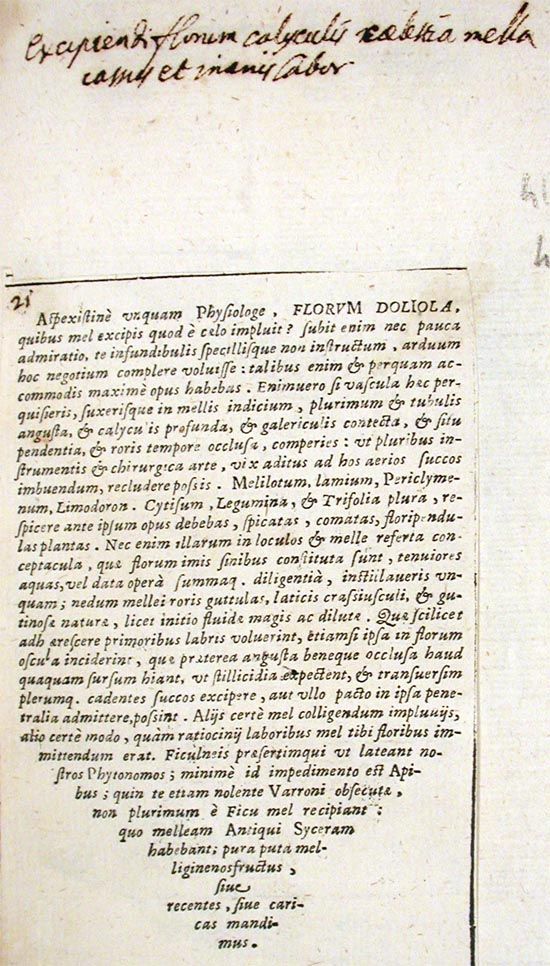 Excipiendi florum calyculis cœlestia mella
cassus et inanis labor
21
Aspexistinè vnquam Physiologe, FLORVM DOLIOLA,
quibus mel excipis quod è cœlo impluit? subit enim nec pauca
admiratio, te infundibulis specillisque non instructum, arduum
hoc negotium complere voluisse: talibus enim & perquam ac-
commodis maximè opus habebas. Enimuero si vascula hæc per-
quisieris, suxerisque in mellis indicium, plurimum & tubulis
angusta, & calyculis profunda, & galericulis contecta, & situ
pendentia, & roris tempore occlusa, comperies: vt pluribus in-
strumentis & chirurgica arte, vix aditus ad hos aerios succos
imbuendum, recludere possis. Melilotum, lamium, Periclyme-
num, Limodoron. Cytisum, Legumina, & Trifolia plura, re-
spicere ante ipsum opus debebas, spicatas, comatas, floripendu-
las plantas. Nec enim illarum in loculos & melle referta con-
ceptacula, quæ florum imis sinibus constituta sunt, tenuiores
aquas, vel data operâ summaq. diligentiâ, instillaueris vn-
quam; nedum mellei roris guttulas, laticis crassiusculi, & glu-
tinosæ naturæ, licet initio fluidæ magis ac dilutæ. Quæ scilicet
adhærescere primoribus labris voluerint, etiamsi ipsa in florum
oscula inciderint, quæ præterea angusta beneque occlusa haud
quaquam sursum hiant, vt stillicidia expectent, & transuersim
plerumq. cadentes succos excipere, aut vllo pacto in ipsa pene-
tralia admittere, possint. Alijs certè mel colligendum impluuijs,
alio certè modo, quàm ratiocinij laboribus mel tibi floribus im-
mittendum erat. Ficulneis præsertimqui vt lateant no-
stros Phytonomos; minimè id impedimento est Api-
bus; quin te etiam nolente Varroni obsecutæ,
non plurimum è Ficu mel recipiant:
quo melleam Antiqui Syceram
habebant; pura puta mel-
ligineno​sfructus,
siue
recentes, siue cari-
cas mandi-
mus.